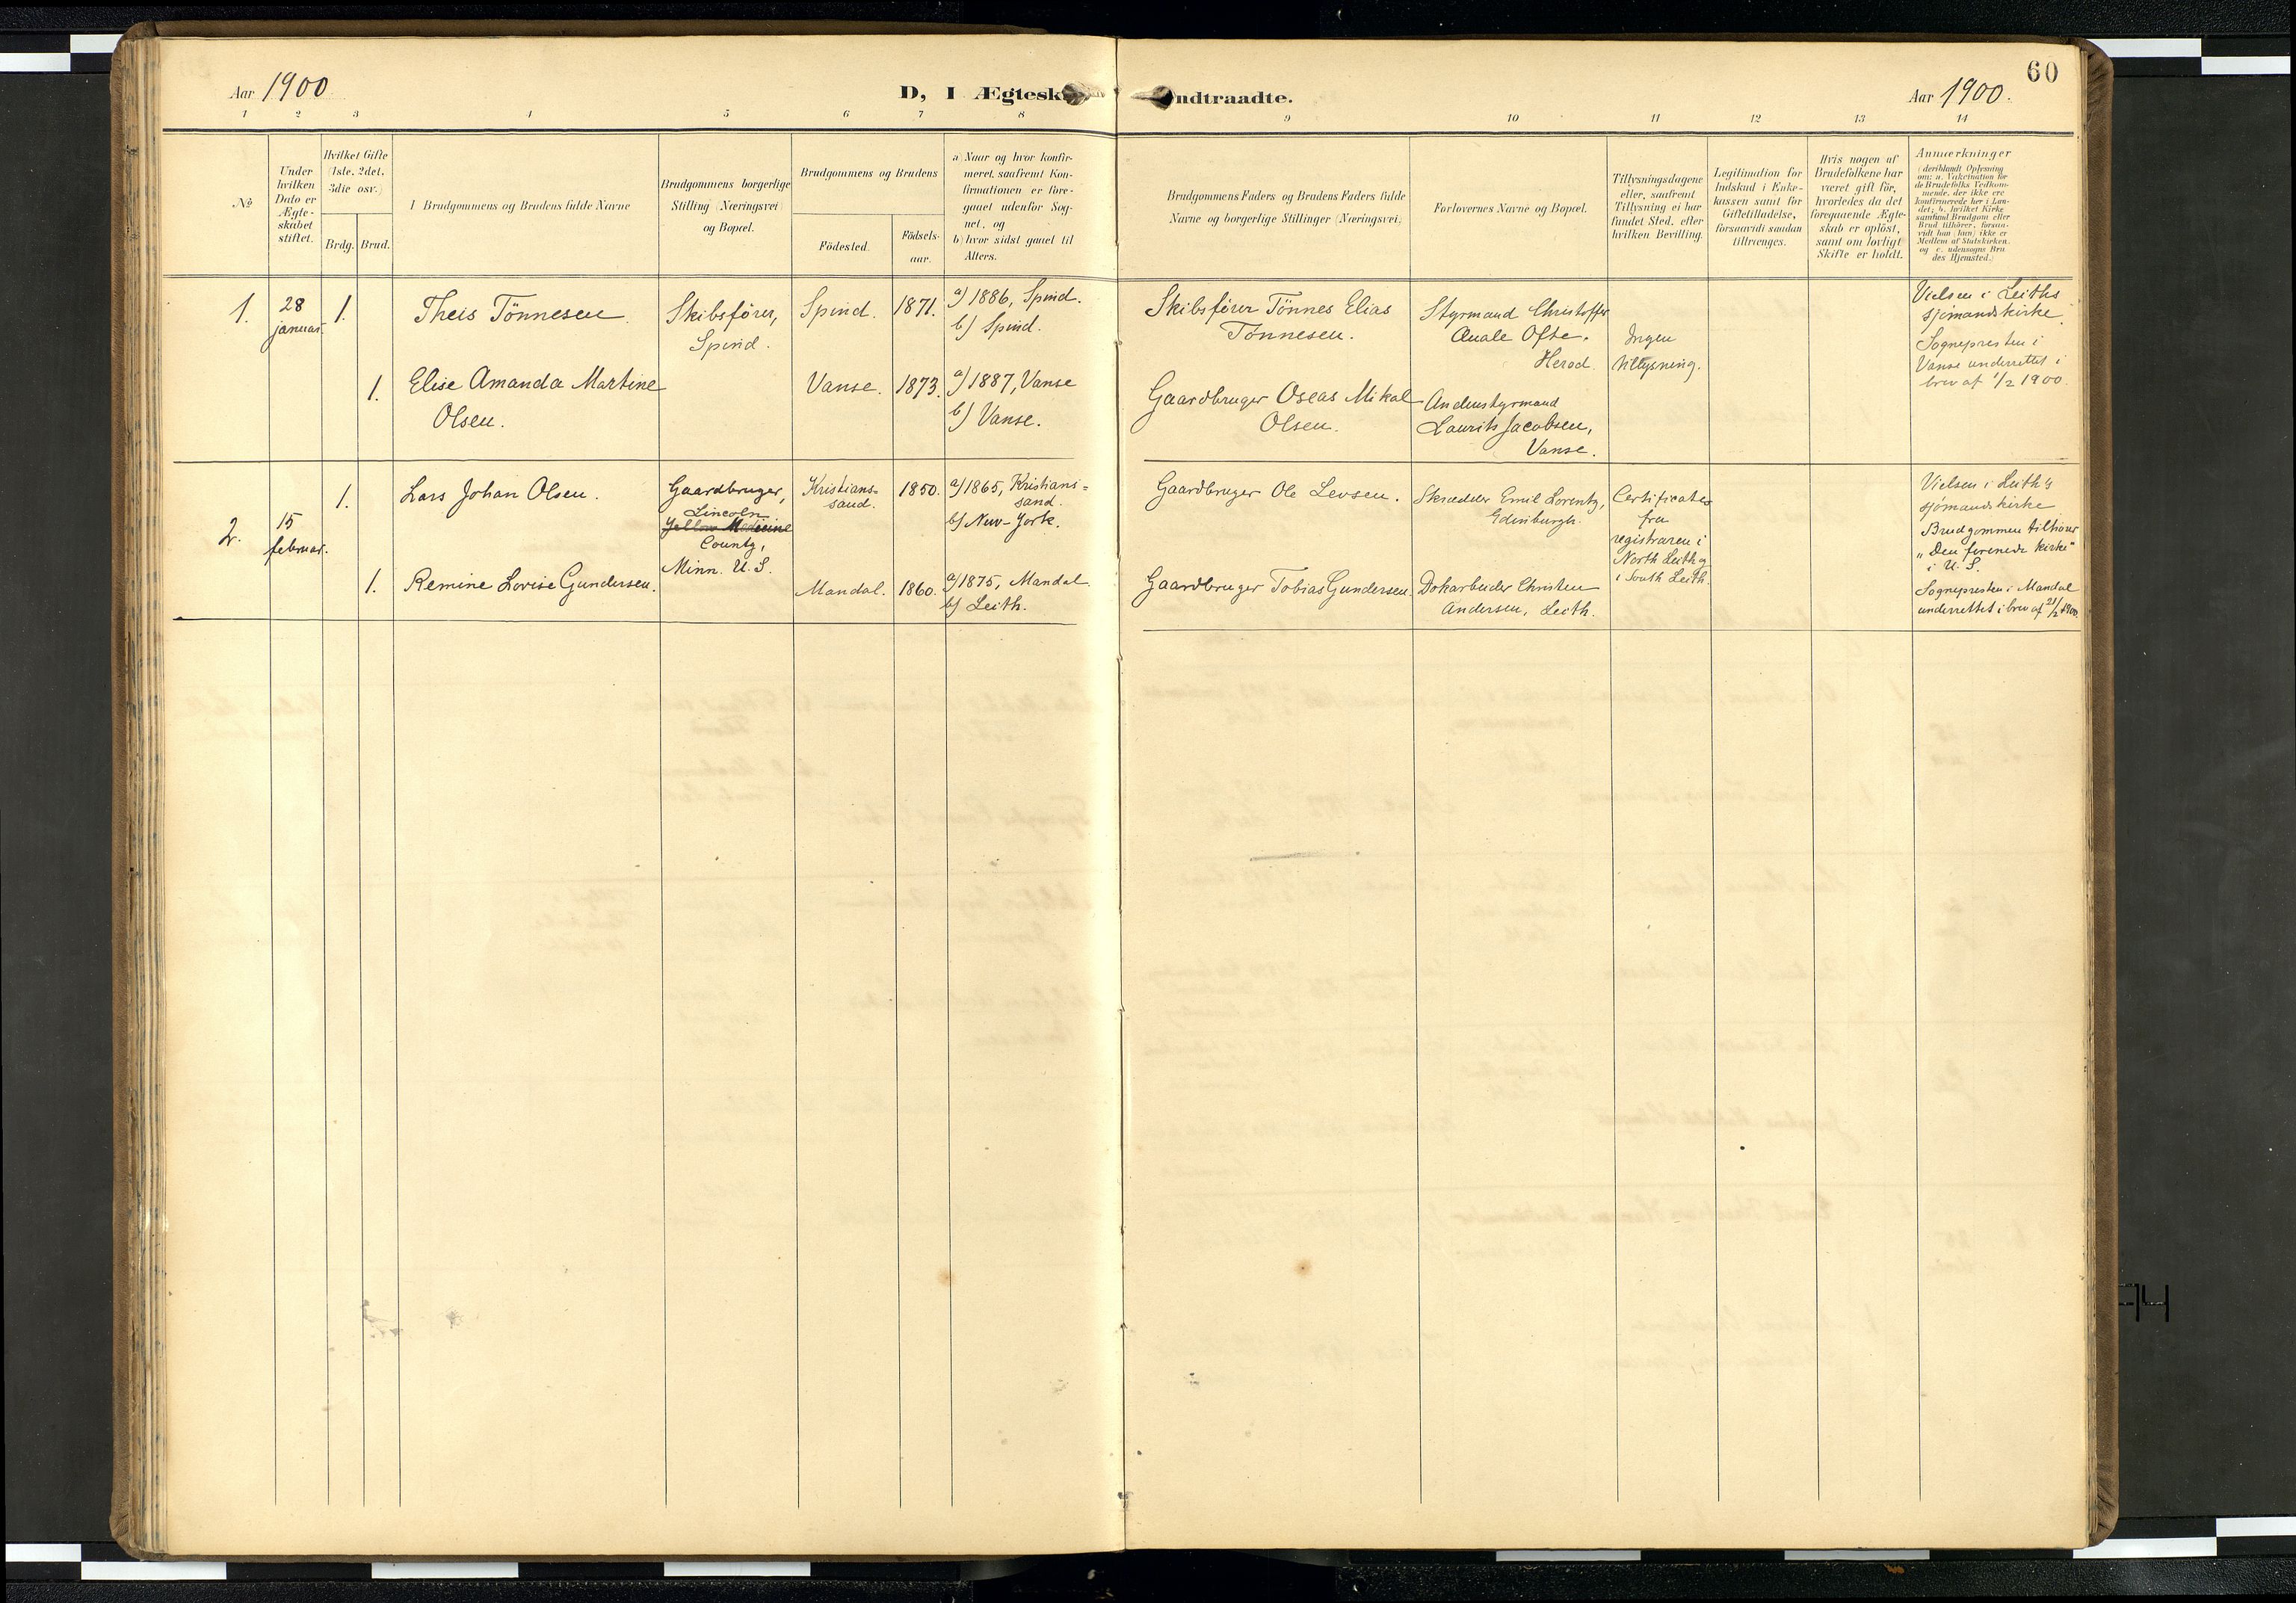 Aar 1900
D, I Ægtesk
ndtraadte.
Aar 1900.
60
1 2 3 4 5 6 7 8
9 10 11 12 13 14
№
Under
hvilken
Dato er
Ægte-
skabet
stiftet.
Hvilket Gifte
(1ste, 2det,
3die osv.)
Brdg. Brud.
1 Brudgommens og Brudens fulde Navne
Brudgommens borgerlige
Stilling (Næringsvei)
og Bopæl.
Brudgommens og Brudens
Födested.
Födsels-
aar.
a) Naar og hvor konfir-
meret, saafremt Kon-
firmationen er fore-
gaaet udenfor Sog-
net, og
b) hvor sidst gaaet til
Alters.
Brudgommens Faders og Brudens Faders fulde
Navne og borgerlige Stillinger (Næringsvei)
Forlovernes Navne og Bopæl.
Tillysningsdagene
eller, saafremt
Tillysning ei har
fundet Sted, efter
hvilken Bevilling.
Legitimation for
Indskud i Enke-
kassen samt for
Giftetilladelse,
forsaavidt saadan
tiltrænges.
Hvis nogen af
Brudefolkene har
været gift før,
hvorledes da det
foregaaende Ægte-
skab er oplöst,
samt om lovligt
Skifte er holdt.
Anmærkninger
(deriblandt Oplysning
om: a. Vakcination for
de Brudefolks Vedkom-
mende, der ikke ere
konfirmerede her i Lan-
det; b. hvilket Kirke-
samfund Brudgom eller
Brud tilhörer, forsaa-
vidt han (hun) ikke er
Medlem af Statskirken,
og c. udensogns Bru-
des Hjemsted.)
1.
28
januar.
1.
Theis Tönnesen
Skibsförer,
Spind.
Spind.
1871.
a) 1886, Spind.
b) Spind.
Skibsförer Tönnes Elias
Tönnesen.
Styrmand Christoffer
Ofte.
Herad.
Ingen
tillysning.
Vielsen i Leiths
sjömandskirke.
Sognepresten i
Vanse underrettet i
brev af 1/2 1900.
1.
Elise Amanda Martine
Olsen.
Vanse.
1873.
a) 1887, Vanse
b) Vanse.
Gaardbruger Oseas Mikal
Olsen.
Andenstyrmand
Laurits Jacobsen,
Vanse.
2.
15
februar.
1.
Lars Johan Olsen.
Gaardbruger,
Lincoln
Yellow Medicine
County,
Minn. U.S.
Kristians=
sand.
1850.
a) 1865, Kristians=
sand.
b) New-York.
Gaardbruger Ole Levsen.
Skrædder Emil Lorentz,
Edinburgh.
Certificates
fra
registraren i
North Leith og
i South Leith.
Vielsen i Leith's
sjömandskirke
Brudgommen tilhörer
"Den forenede kirke"
i U.S.
Sognepresten i Mandal
underrettet i brev af 21/2 1900.
1.
Remine Lovise Gundersen.
Mandal.
1860.
a) 1875, Mandal.
b) Leith.
Gaardbruger Tobias Gundersen.
Dokarbeider Christen
Andersen, Leith.